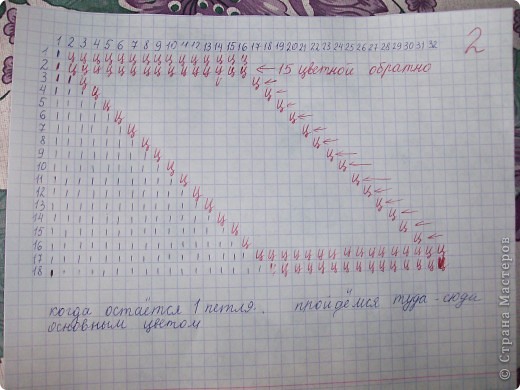 2
1 2 3 4 5 6 7 8 9 10 11 12 13 14 15 16 17 18 19 20 21 22 23 24 25 26 27 28 29 30 31 32
1 ц ц ц ц ц ц ц ц ц ц ц ц ц ц ц
2 ц ц ц ц ц ц ц ц ц ц ц ц ц ц ц ← 15 цветной обратно
3 ц ц ←
4 ц ц ←
5 ц ц ←
6 ц ц ←
7 ц ц ←
8 ц ц ←
9 ц ц ←
10 ц ц ←
11 ц ц ←
12 ц ц ←
13 ц ц ←
14 ц ц ←
15 ц ц ←
16 ц ц ←
17 ц ц ц ц ц ц ц ц ц ц ц ц ц ц ц ц
18 ц ц ц ц ц ц ц ц ц ц ц ц ц ц
когда остаётся 1 петля.. пройдёмся туда-сюда
основным цветом
© Страна Мастеров